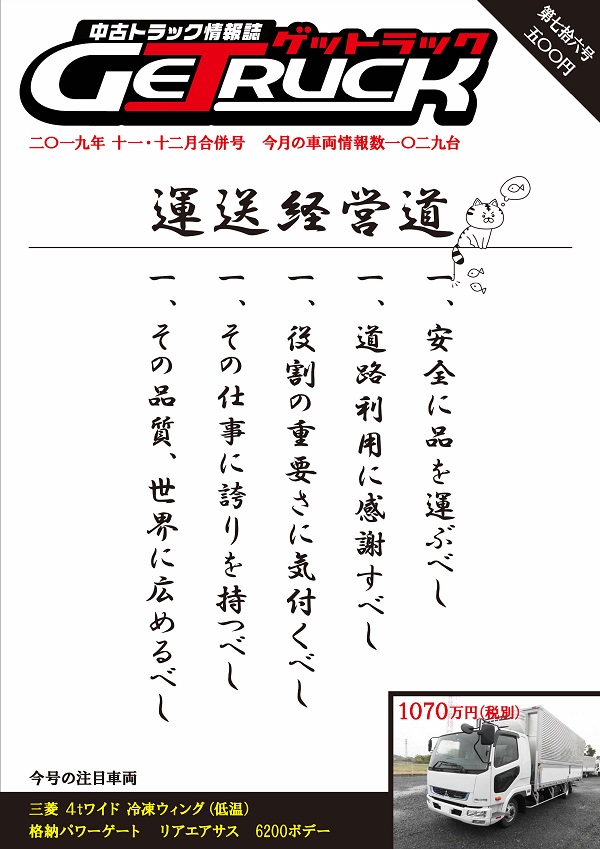 中古トラック情報誌
ゲットラック
GETRUCK
第七拾六号
五〇〇円
二〇一九年 十一・十二月合併号　今月の車両情報数一〇二九台
運送経営道
一、安全に品を運ぶべし
一、道路利用に感謝すべし
一、役割の重要さに気付くべし
一、その仕事に誇りを持つべし
一、その品質、世界に広めるべし
1070万円(税別)
今号の注目車両
三菱 4tワイド 冷凍ウィング(低温)
格納パワーゲート　リアエアサス　6200ボデー